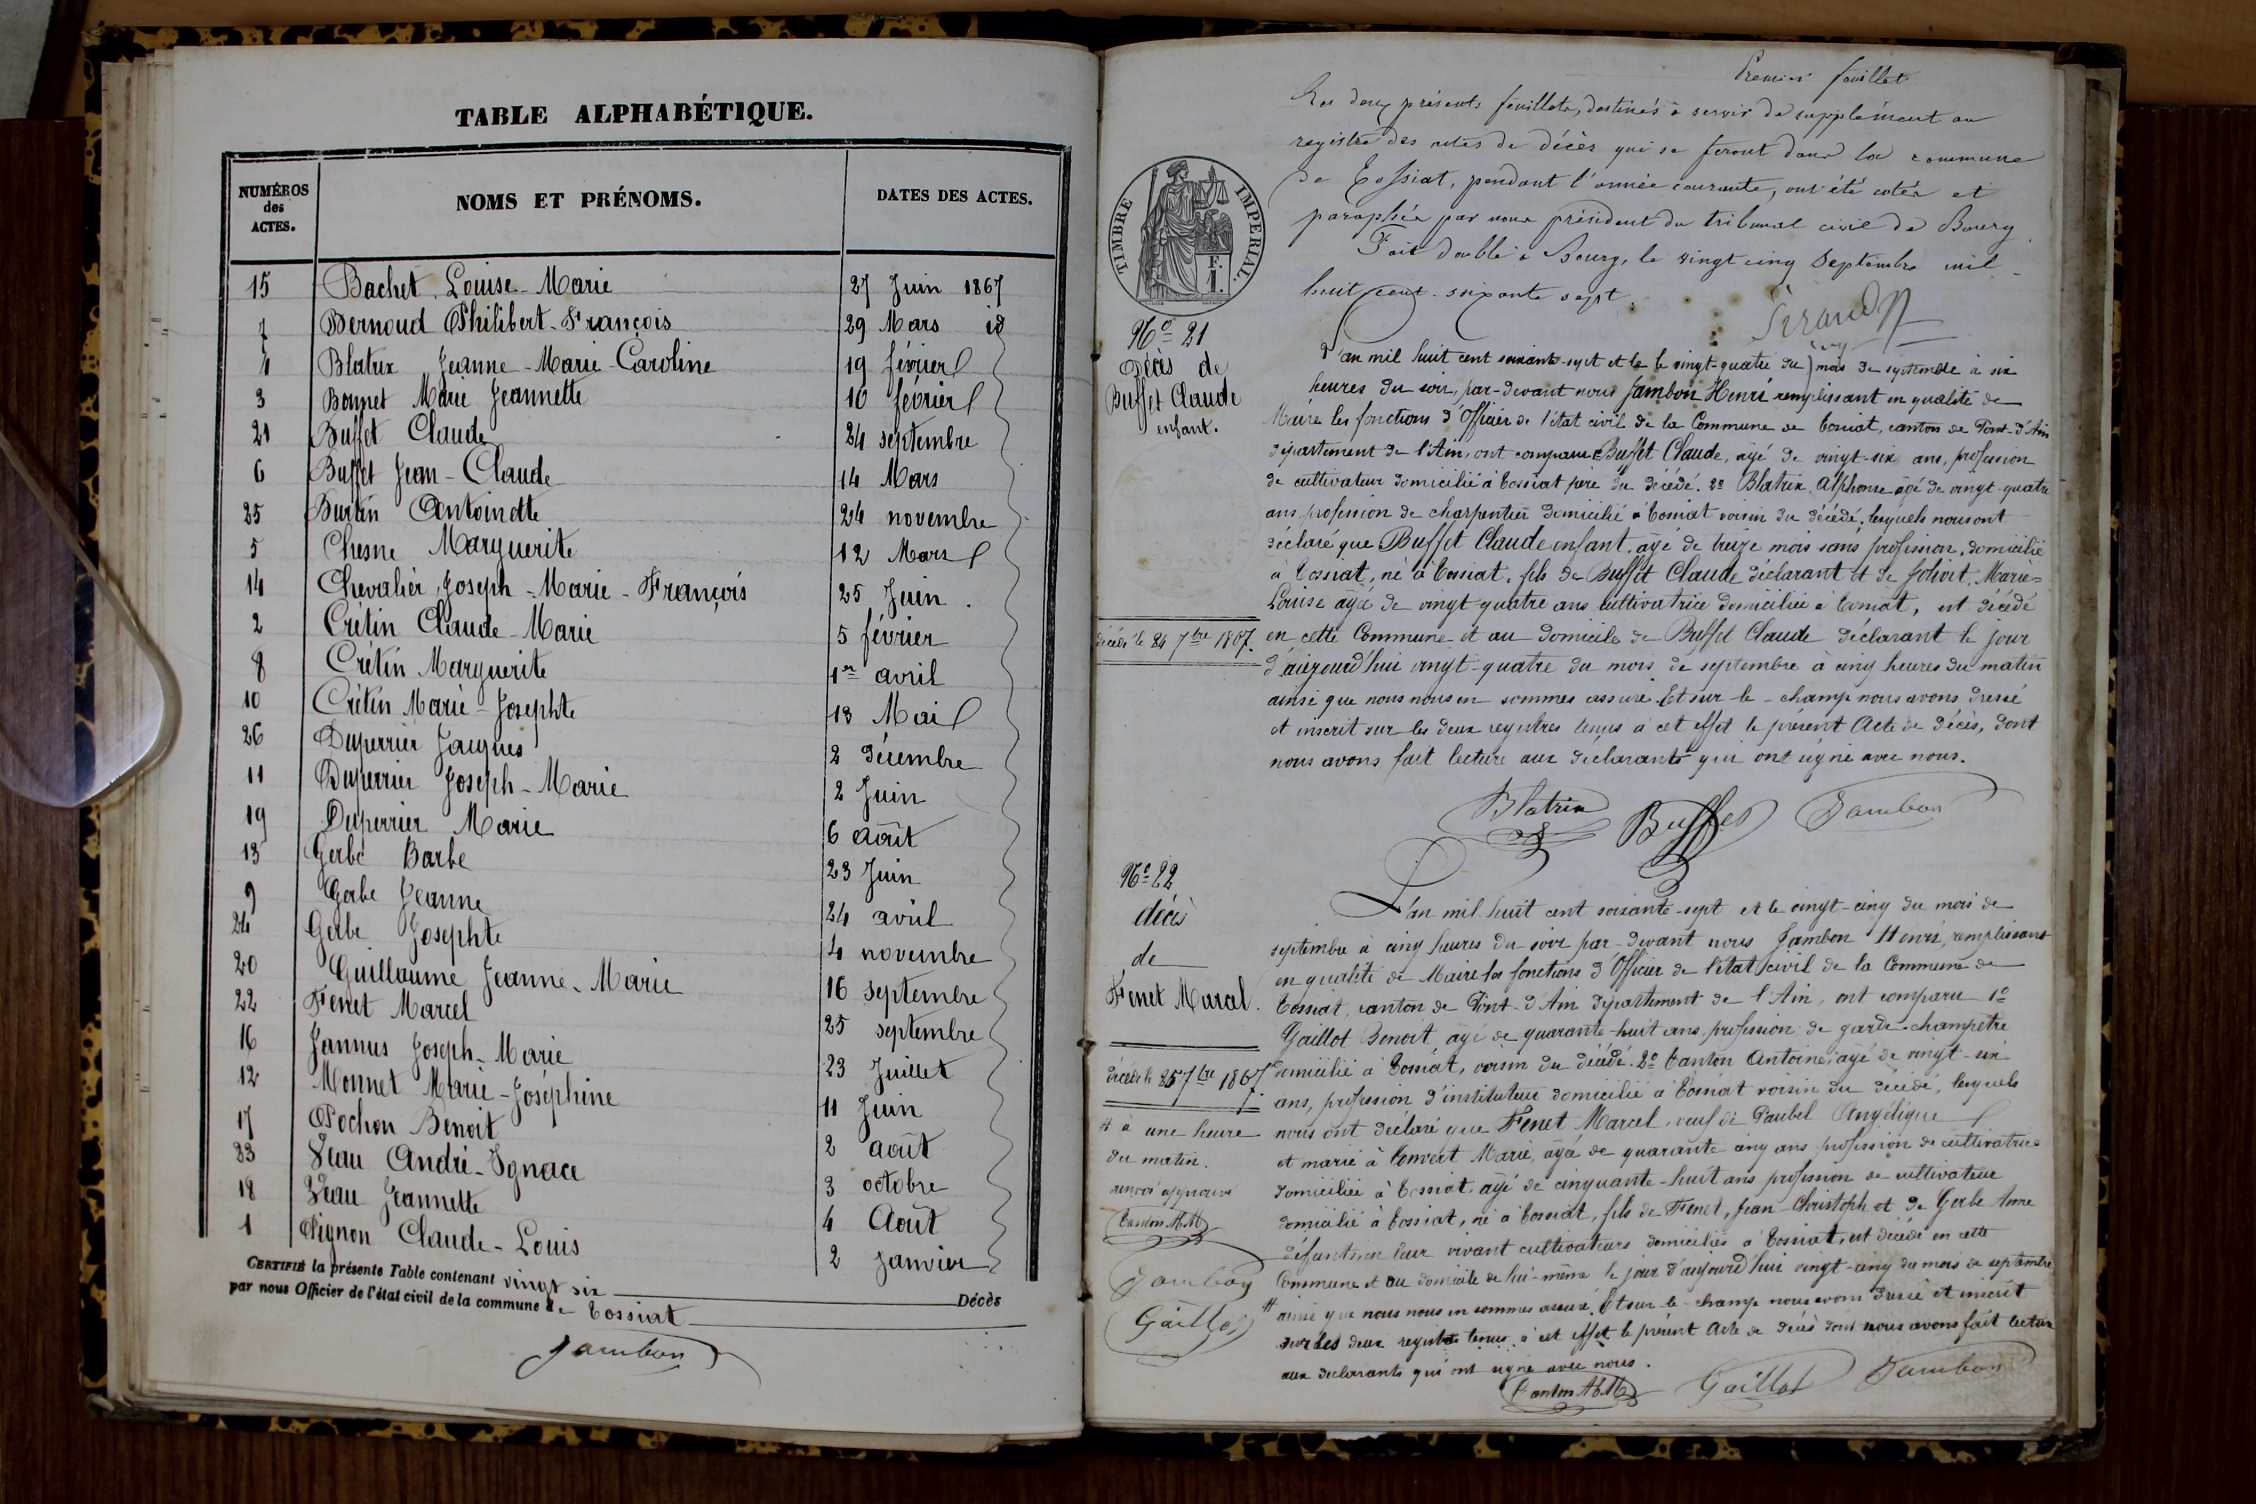 TABLE ALPHABÉTIQUE.
NUMÉROS des ACTES. NOMS ET PRÉNOMS. DATES DES ACTES.
15 Bachet Louise-Marie 27 Juin 1867
7 Bernoud Philibert-François 29 Mars id
4 Blatrix Jeanne-Marie-Caroline 19 février
3 Bonnet Marie Jeannette 10 février
21 Buffet Claude 24 septembre
6 Buffet Jean-Claude 14 Mars
25 Burtin Antoinette 24 novembre
5 Chesne Marguerite 12 Mars
14 Chevalier Joseph-Marie-François 25 Juin.
2 Crétin Claude-Marie 5 février
8 Crétin Marguerite 1er avril
10 Crétin Marie-Josephte 18 Mai
26 Duperrier Jacques 2 décembre
11 Duperrier Joseph-Marie 2 Juin
19 Duperrier Marie 6 août
13 Gerbe Barbe 23 Juin
9 Gerbe Jeanne 24 avril
24 Gerbe Josephte 4 novembre
20 Guillaume Jeanne-Marie 16 septembre
22 Fenet Marcel 25 septembre
16 Jannus Joseph-Marie 23 Juillet
12 Monnet Marie-Joséphine 11 Juin
17 Pochon Benoit 2 août
23 Veau André-Ignace 3 octobre
18 Veau Jeannette 4 Août
1 Pignon Claude-Louis 2 Janvier
CERTIFIÉ la présente Table contenant vingt six Décès
par nous Officier de l'état civil de la commune de Tossiat
Jambon
Premier feuillet
Les deux présents feuillets, destinés à servir de supplément au
registre des actes de décès qui se feront dans la commune
de Tossiat, pendant l'année courante, ont été cotés et
paraphés par nous président du tribunal civil de Bourg.
Fait double à Bourg, le vingt cinq Septembre mil
huit cent soixante sept.
TIMBRE IMPERIAL.
F.
1.
No 21
Décès de
Buffet Claude
enfant.
L'an mil huit cent soixante-sept et le vingt-quatre du mois de septembre à six
heures du soir, par-devant nous Jambon Henri remplissant en qualité de
Maire les fonctions d'Officier de l'état civil de la Commune de Tossiat, canton de Pont-d'Ain
département de l'Ain, ont comparu Buffet Claude, âgé de vingt-six ans, profession
de cultivateur domicilié à Tossiat père du décédé. 2o Blatrix Alphonse âgé de vingt-quatre
ans profession de charpentier domicilié à Tossiat voisin du décédé, lesquels nous ont
déclaré que Buffet Claude enfant, âgé de treize mois sans profession, domicilié
à Tossiat, né à Tossiat, fils de Buffet Claude déclarant et de Jolivet Marie-
Louise âgée de vingt quatre ans cultivatrice domiciliée à Tossiat, est décédé
en cette Commune et au domicile de Buffet Claude déclarant le jour
d'aujourd'hui vingt-quatre du mois de septembre à cinq heures du matin
ainsi que nous nous en sommes assuré. Et sur-le-champ nous avons dressé
et inscrit sur les deux registres tenus à cet effet le présent Acte de décès, dont
nous avons fait lecture aux déclarants qui ont signé avec nous.
décédé le 24 7bre 1867.
Blatrix Buffet Jambon
No 22
décès
de
Fenet Marcel.
décédé le 25 7bre 1867.
L'an mil huit cent soixante-sept et le vingt-cinq du mois de
septembre à cinq heures du soir par-devant nous Jambon Henri, remplissant
en qualité de Maire les fonctions d'Officier de l'état civil de la Commune de
Tossiat, canton de Pont-d'Ain département de l'Ain, ont comparu 1o
Gaillot Benoit âgé de quarante-huit ans profession de garde-champêtre
domicilié à Tossiat, voisin du décédé. 2o Tanton Antoine, âgé de vingt-six
ans, profession d'instituteur domicilié à Tossiat voisin du décédé, lesquels
nous ont déclaré que Fenet Marcel, veuf de Paubel Angélique
et marié à Convert Marie, âgée de quarante cinq ans profession de cultivatrice
domiciliée à Tossiat, âgé de cinquante-huit ans profession de cultivateur
domicilié à Tossiat, né à Tossiat, fils de Fenet, Jean-Christoph et de Gerbe Anne
défunts en leur vivant cultivateurs domiciliés à Tossiat, est décédé en cette
Commune et au domicile de lui-même le jour d'aujourd'hui vingt-cinq du mois de septembre
# ainsi que nous nous en sommes assuré. Et sur-le-champ nous avons dressé et inscrit
sur les deux registres tenus à cet effet le présent Acte de décès dont nous avons fait lecture
aux déclarants qui ont signé avec nous.
# à une heure
du matin.
renvoi approuvé
Tanton A. M.
Jambon
Gaillot
Tanton A. M. Gaillot Jambon